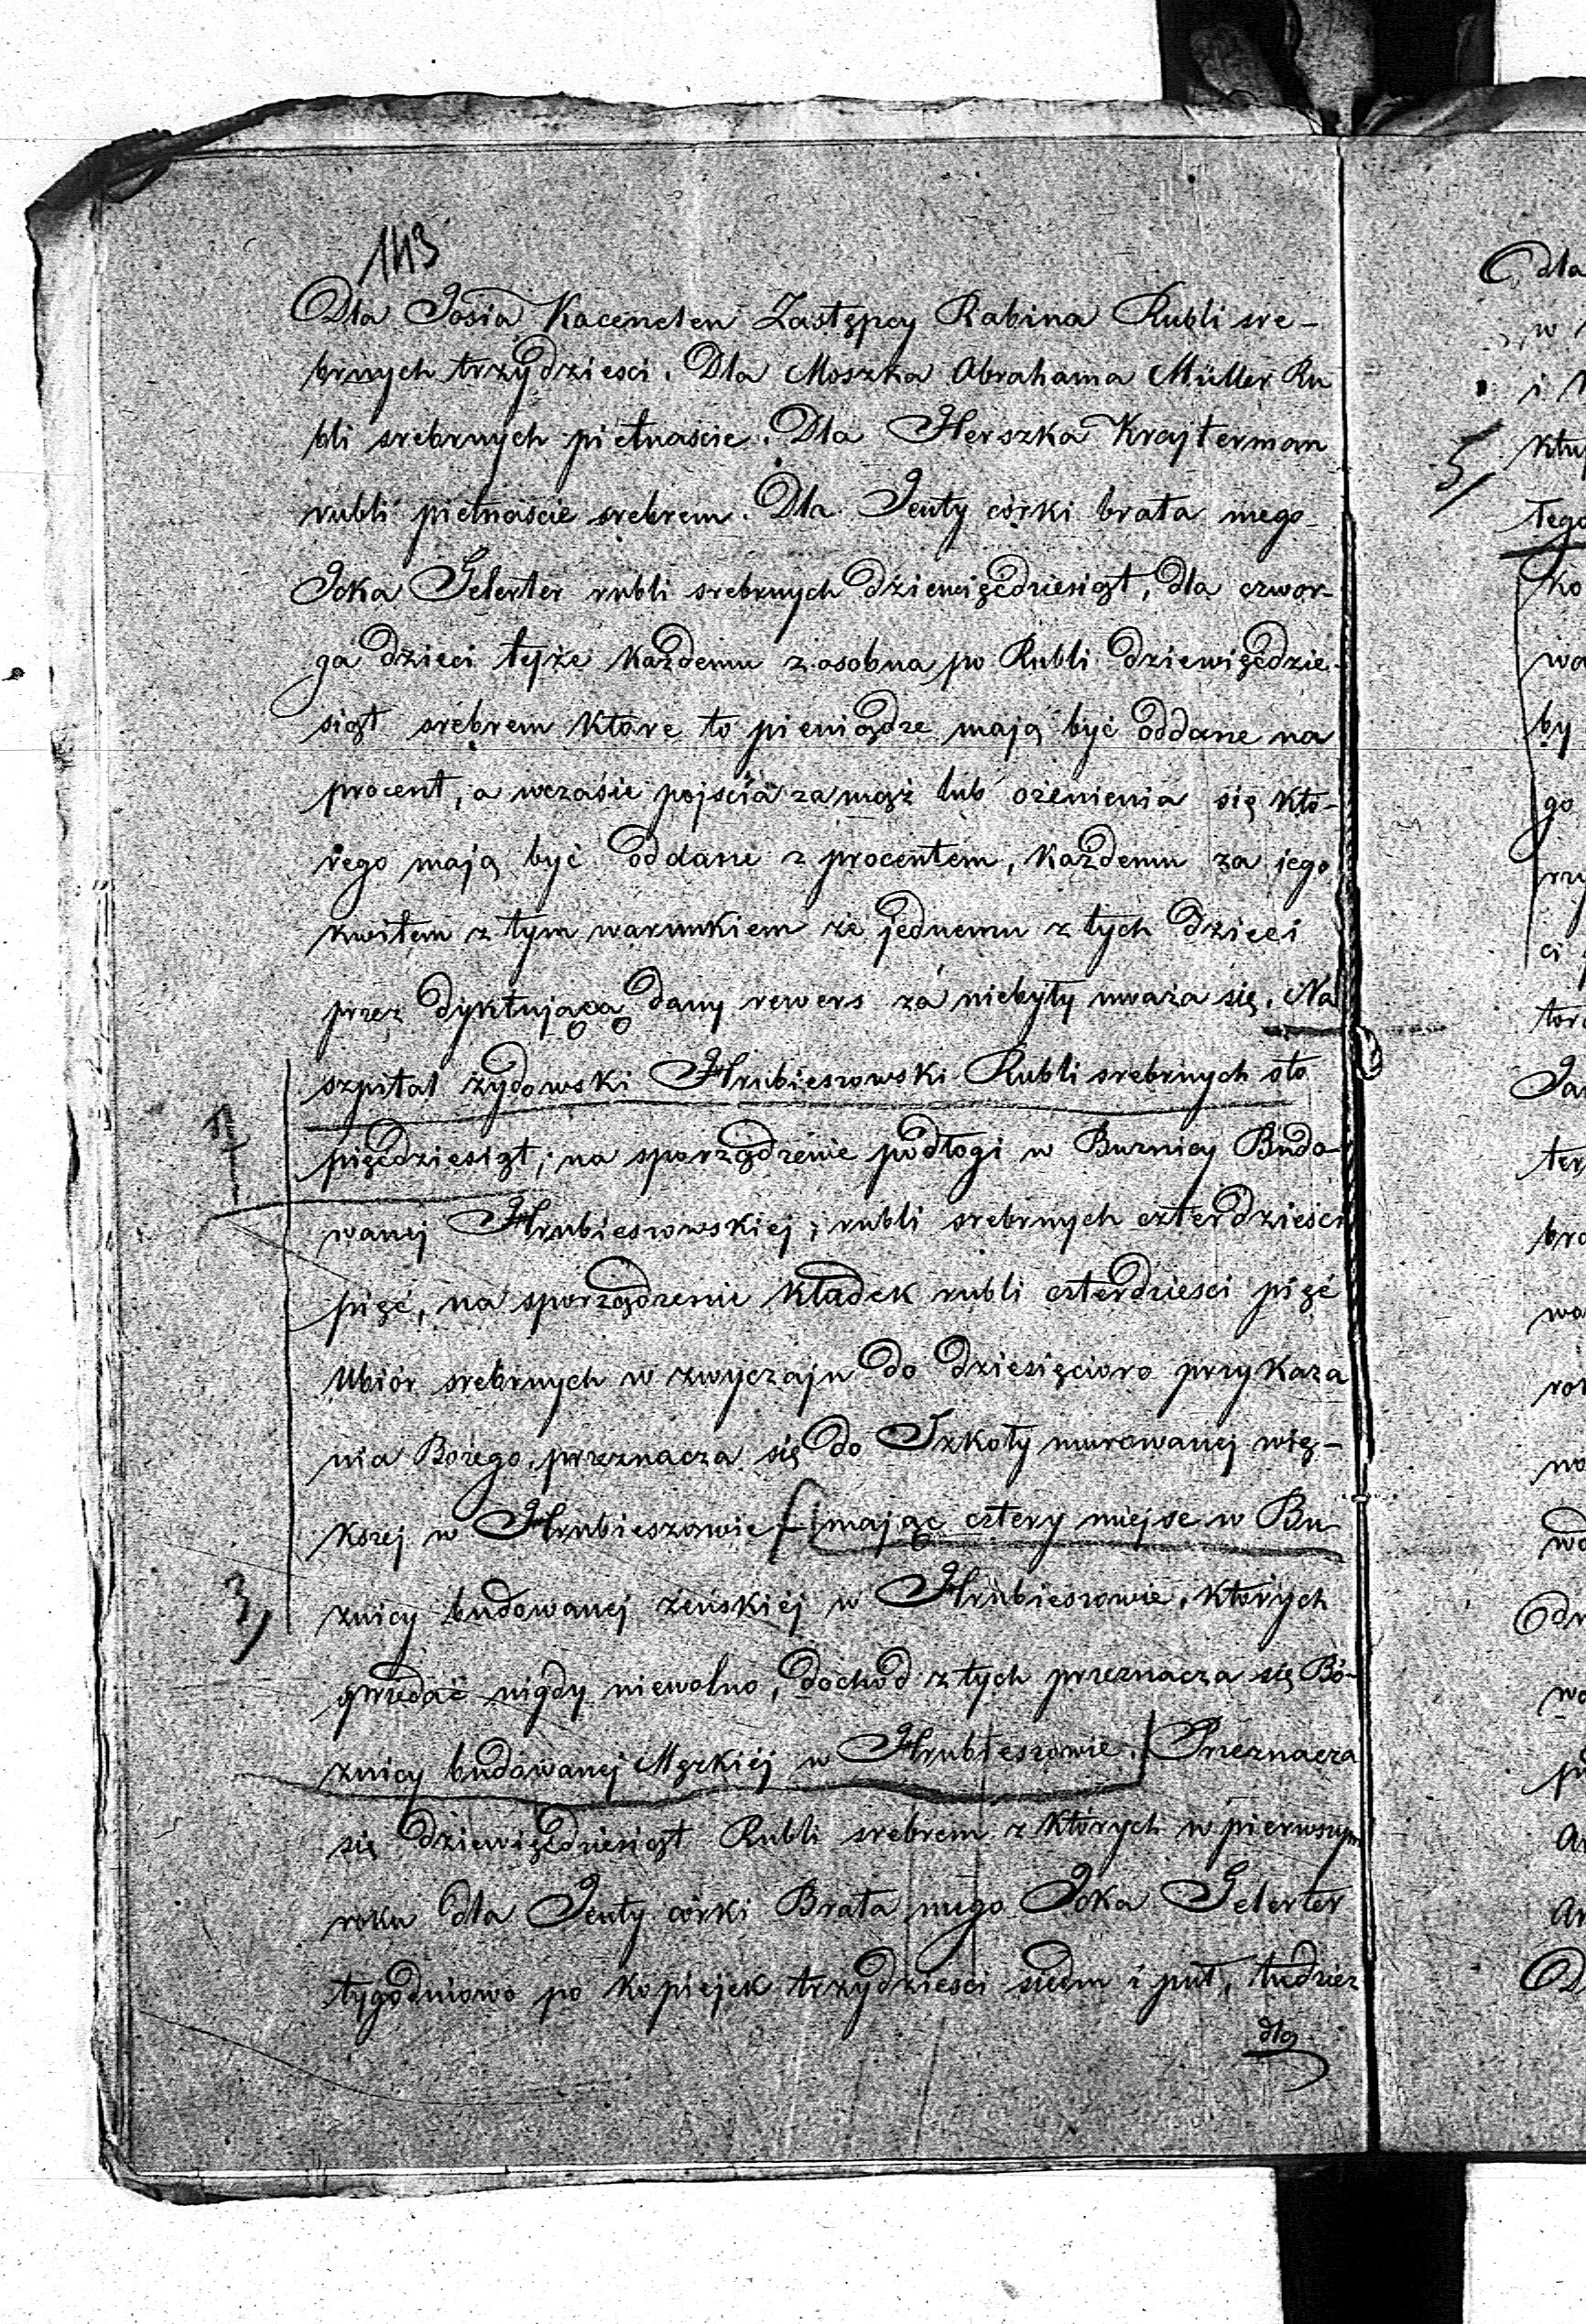 143
Dla Josia Kacenelen Zastępcy Rabina Rubli sre-
brnych trzydziesci. Dla Moszka Abrahama Müller Ru
bli srebrnych pietnascie. Dla Herszka Krajterman
rubli pietnascie srebrem. Dla Jenty córki brata mego
Icka Gelerter rubli srebrnych dziewięćdziesiąt, dla czwor-
ga dzieci tejże każdemu z osobna po Rubli dziewięćdzie-
siąt srebrem które to pieniądze mają być oddane na
procent, a wczasie pojścia zamąż lub ożenienia się któ-
rego mają być oddane z procentem, każdemu za jego
kwitem z tym warunkiem że jednemu z tych dzieci
przez dyktującą dany rewers za niebyły uważa się. Na
szpital żydowski Hrubieszowski Rubli srebrnych sto
pięćdziesiąt; na sporządzenie podłogi w Buznicy Budo-
wanej Hrubieszowskiej; rubli srebrnych czterdzieści
pięć, na sporządzenie kładek rubli czterdziesci pięć
Ubiór srebrnych w zwyczaju do dziesięcioro przykaza
nia Bożego, przeznacza się do Szkoły murowanej wię-
kszej w Hrubieszowie mając cztery miejsc w Bu-
3,
żnicy budowanej żeńskiéj w Hrubieszowie, których
sprzedać nigdy niewolno, dochod z tych przeznacza się Bó-
żnicy budowanej Męzkiéj w Hrubieszowie. Przeznacza
się dziewięćdziesiąt Rubli srebrem z których w pierwszym
roku dla Jenty córki Brata mego Icka Gelerter
tygodniowo po kopiejek trzydziesci siedm i puł, tudzież
dla
dla
w
i
5/
tego
ko
wa
by
go
rzy
ci
Ja
ter
bra
wa
no
wa